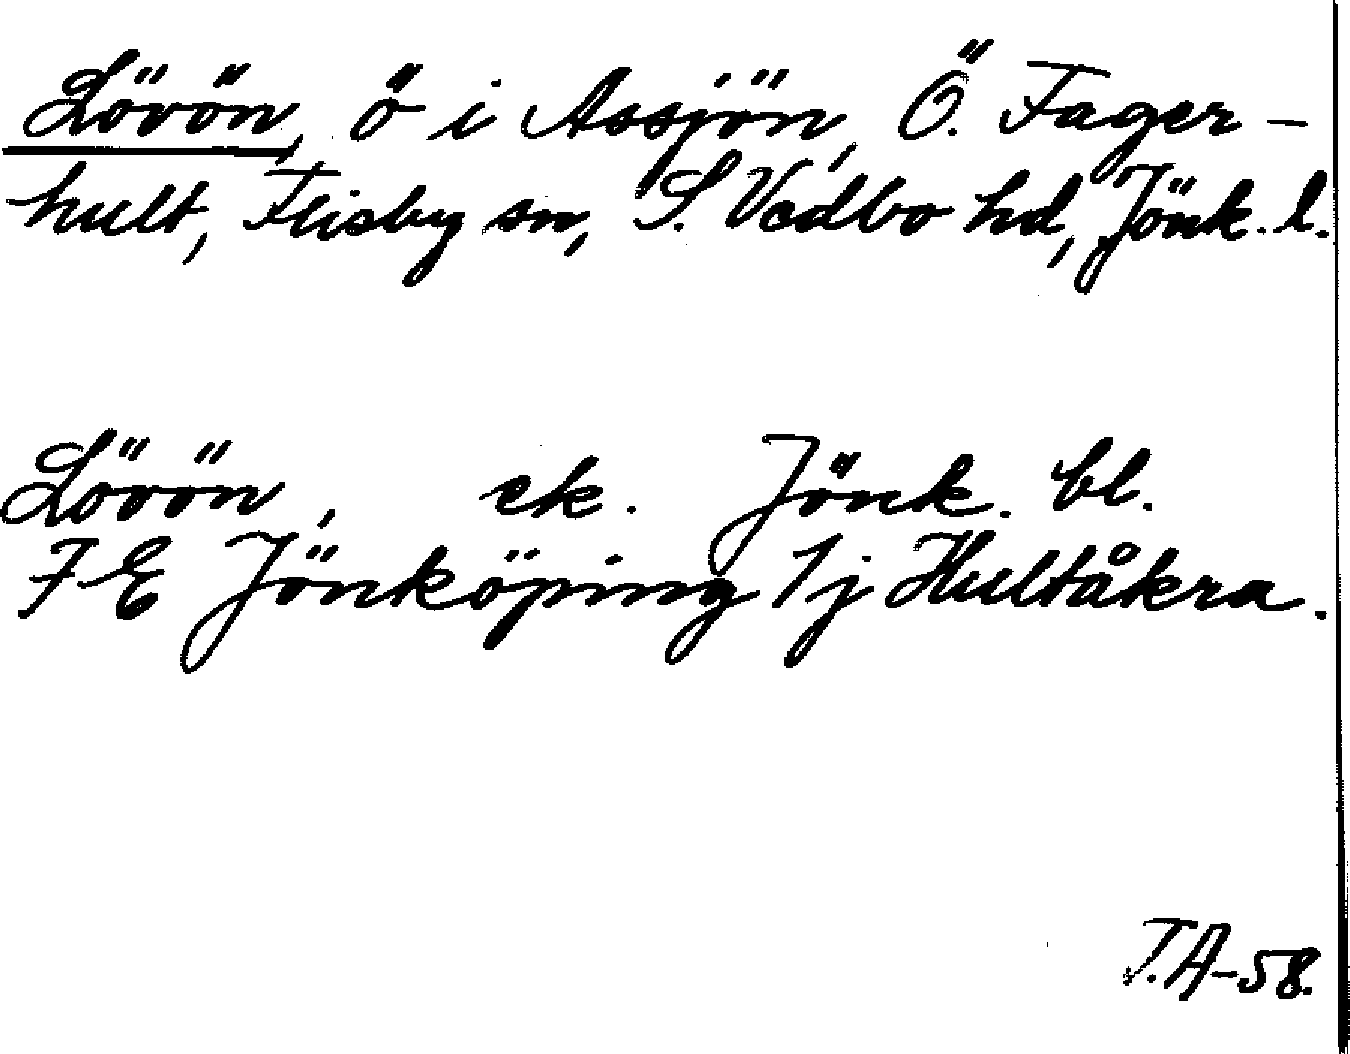 Lövön, ö i Assjön, Ö. Fager-
hult, Flisby sn, S. Vedbo hd, Jönk. l.
Lövön, ek. Jönk. bl.
7 E Jönköping 1j Hultåkra.
T.A-58.